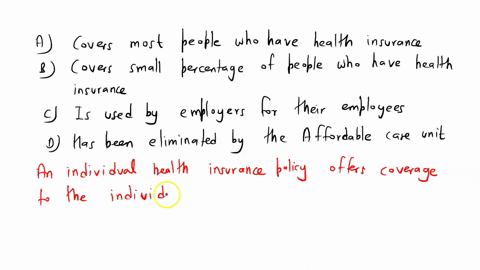 A) Covers most people who have health insurance
B) Covers small percentage of people who have health
insurance
C) Is used by employers for their employees
D) Has been eliminated by the Affordable care unit
An individual health insurance policy offers coverage
to the individ